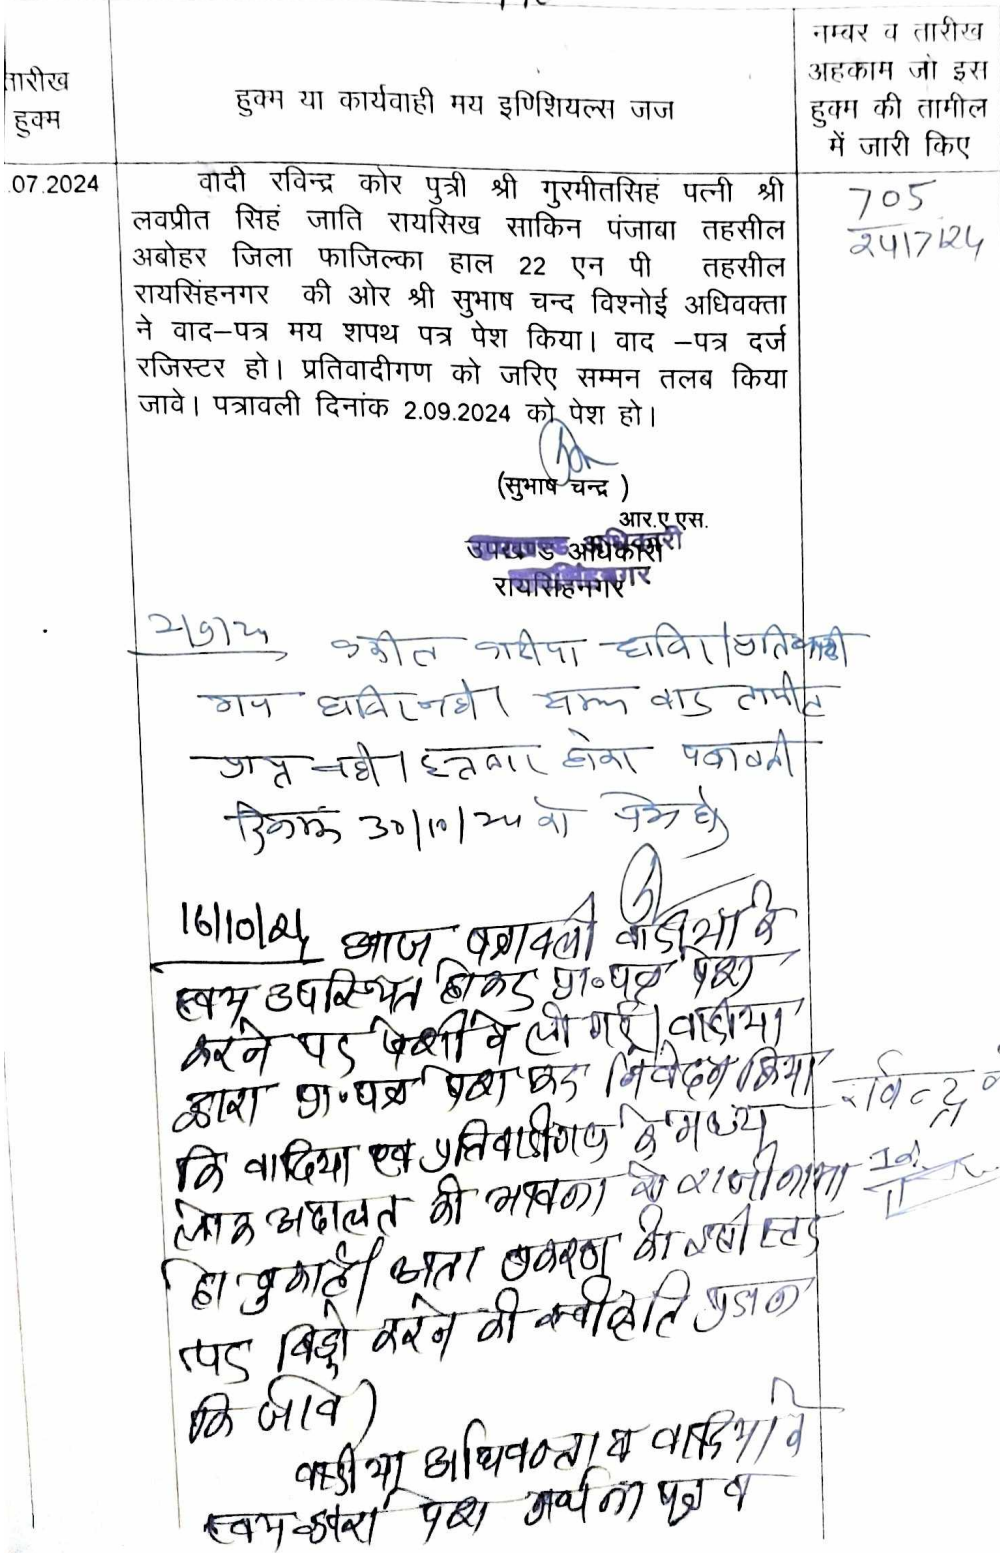 नम्वर व तारीख
अहकाम जो इस
हुक्म की तामील
में जारी किए
तारीख
हुक्म
हुक्म या कार्यवाही मय इण्शियल्स जज
.07.2024
वादी रविन्द्र कोर पुत्री श्री गुरमीतसिहं पत्नी श्री
लवप्रीत सिहं जाति रायसिख साकिन पंजाबा तहसील
अबोहर जिला फाजिल्का हाल 22 एन पी तहसील
रायसिंहनगर की ओर श्री सुभाष चन्द विश्नोई अधिवक्ता
ने वाद–पत्र मय शपथ पत्र पेश किया। वाद –पत्र दर्ज
रजिस्टर हो। प्रतिवादीगण को जरिए सम्मन तलब किया
जावे। पत्रावली दिनांक 2.09.2024 को पेश हो।
705
24/7/24
(सुभाष चन्द्र )
आर.ए.एस.
उपखण्ड अधिकारी
रायसिंहनगर
2/9/24 वकील वादीया हाजिर। प्रतिवादी
गण हाजिर नही। सम्मन बाद तामील
प्राप्त नही। इन्तजार होकर पत्रावली
दिनांक 30/10/24 को पेश हो
16/10/24 आज पत्रावली वादीया के
स्वयं उपस्थित होकर प्रा.पत्र पेश
करने पर पेशी मे ली गई। वादीया
द्वारा प्रा.पत्र पेश कर निवेदन किया
कि वादिया एवं प्रतिवादीगण के मध्य
लोक अदालत की भावना से राजीनामा
हो चुका है। अतः प्रकरण को इसी स्टेज
पर विड्रो करने की स्वीकृति प्रदान
कि जावे।
रविन्द्र
वादीया अधिवक्ता व वादिया के
स्वयं द्वारा पेश प्रार्थना पत्र व